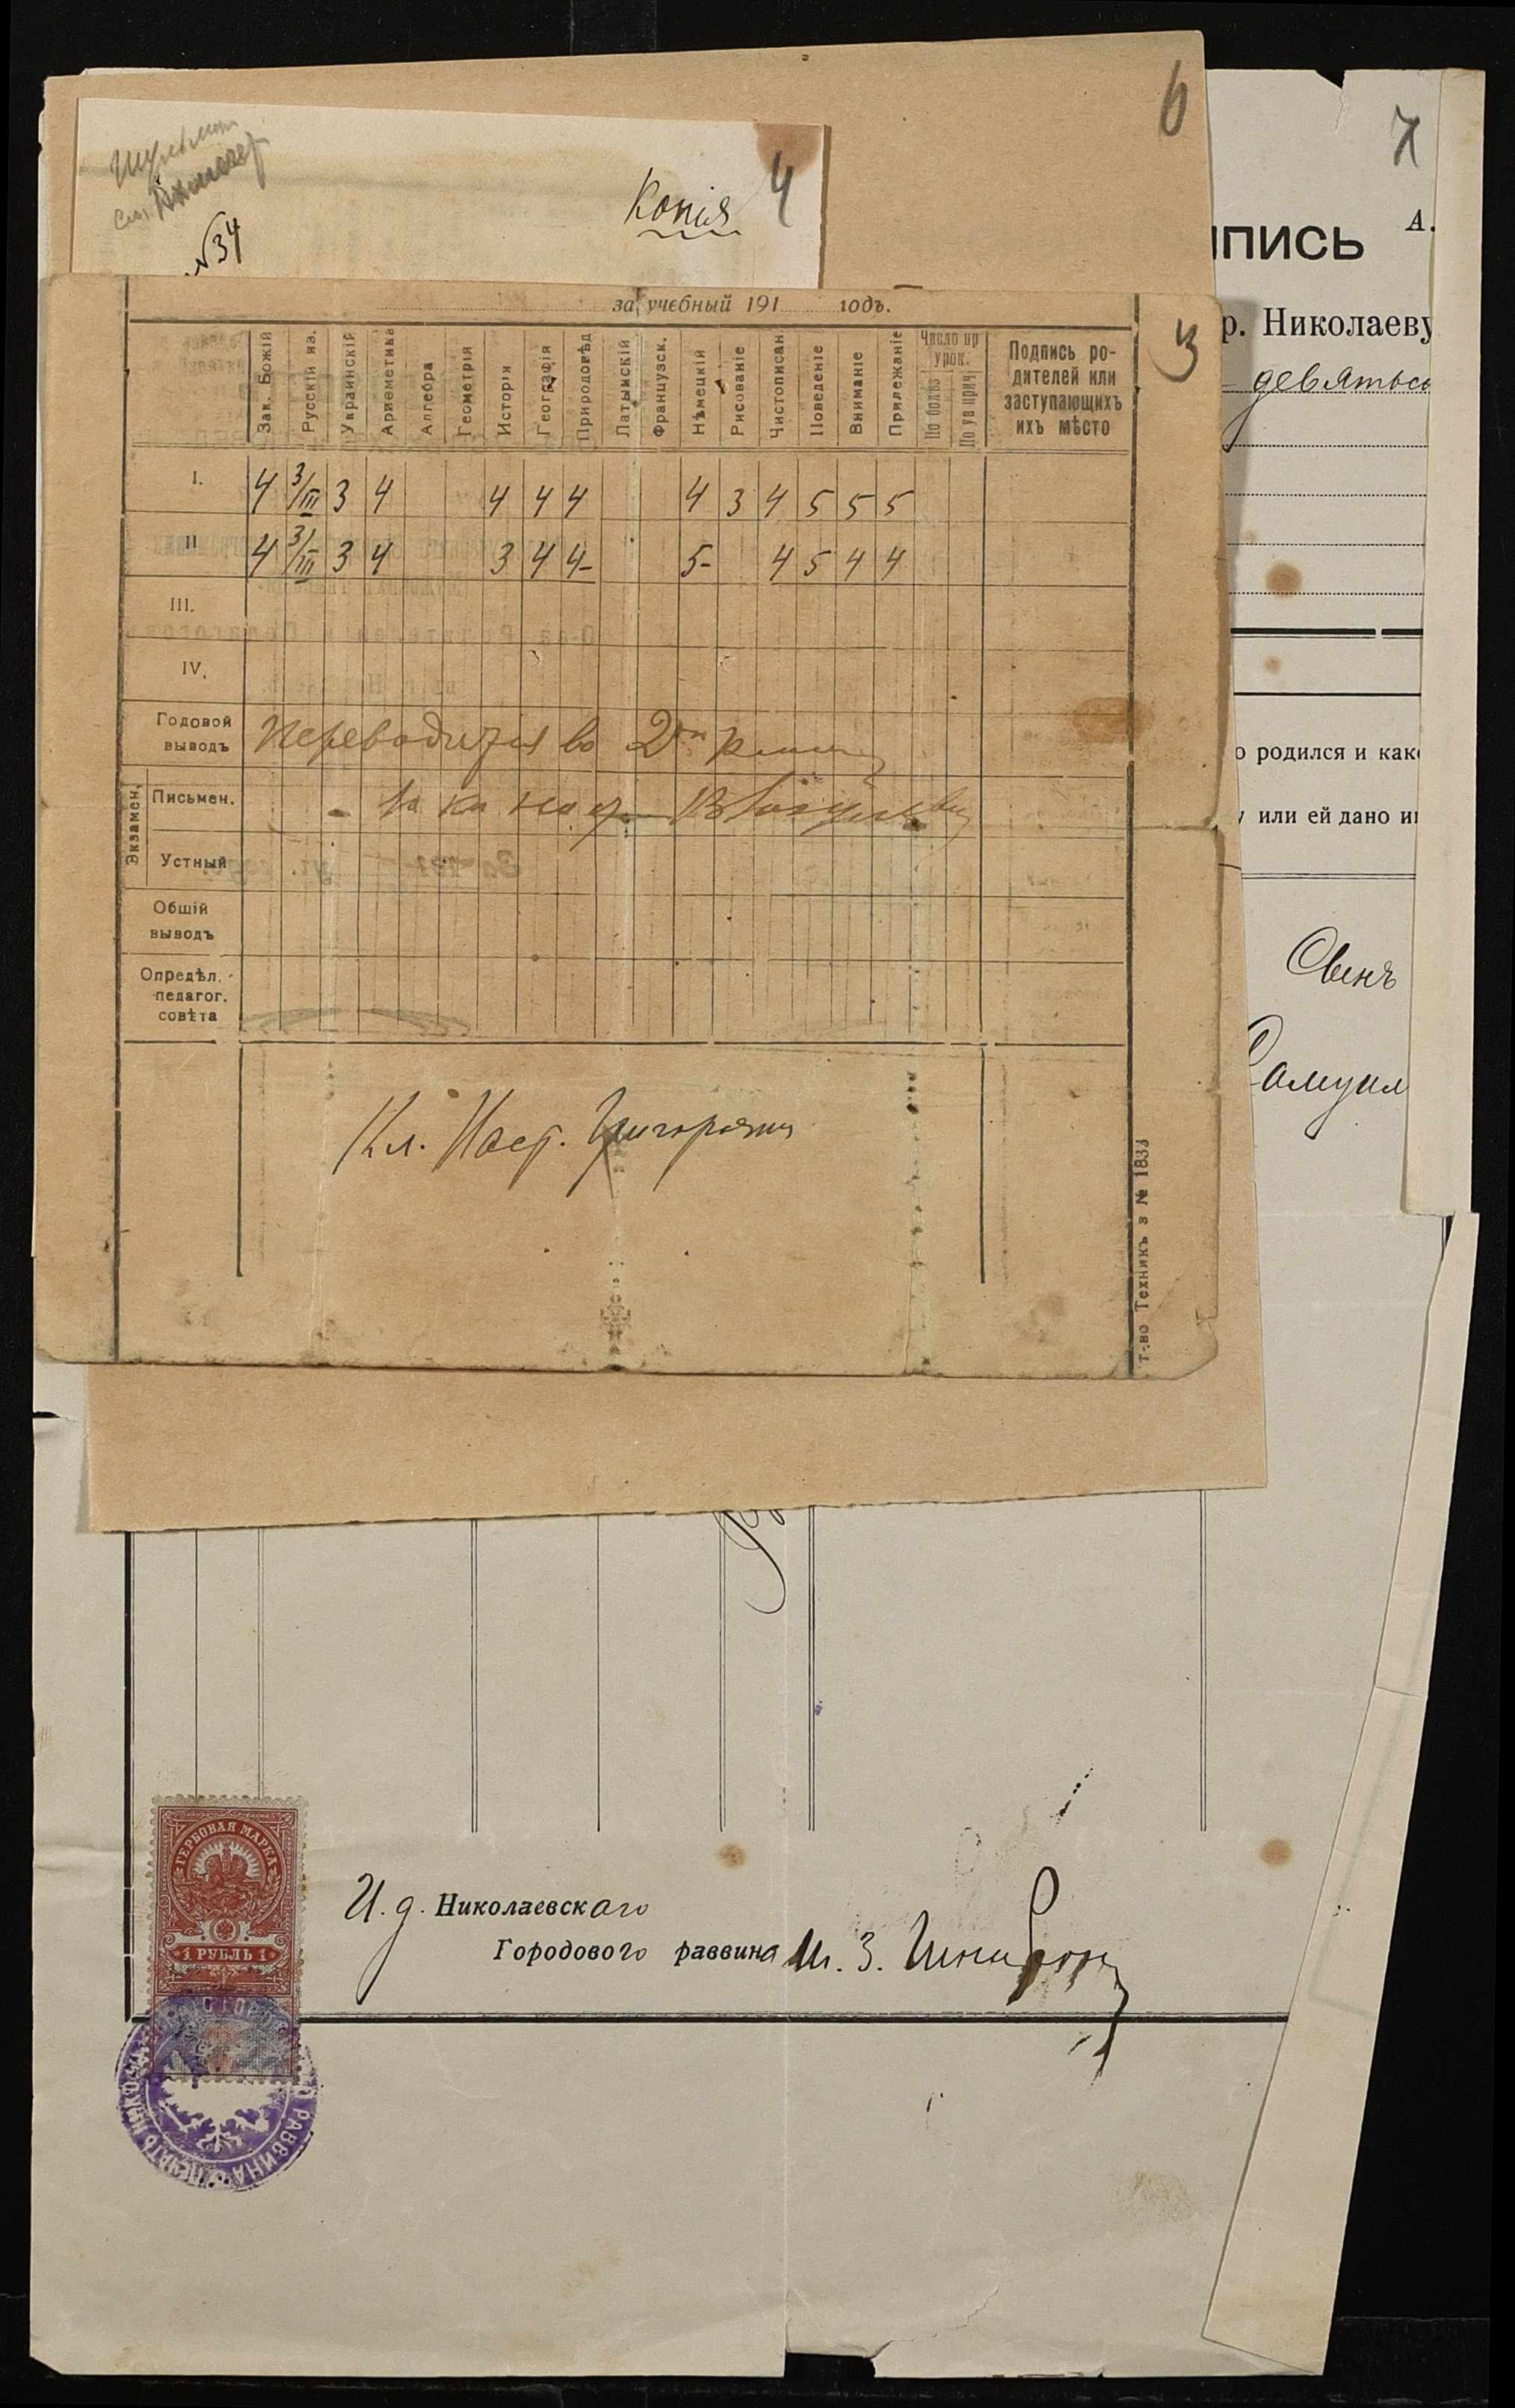 6
7
4
Копія
№34
А.
ПИСЬ
р. Николаеву
девятьсо
3
за учебный 191 годъ.
Зак. Божій
Русскій яз.
Украинскій
Ариөметика
Алгебра
Геометрія
Исторія
Географія
Природовѣд
Латымскій
Французск.
Нѣмецкій
Рисованіе
Чистописан
Поведеніе
Вниманіе
Прилежаніе
Число пр урок.
По болѣз
По ув прич
Подпись ро-
дителей или
заступающихъ
ихъ мѣсто
I. 4 3/III 3 4 4 4 4 4 3 4 5 5 5
II 4 3/III 3 4 3 4 4- 5- 4 5 4 4
III.
IV.
Годовой
выводъ
Переводится во 2ой
Экзамен.
Письмен.
Устный
Общій
выводъ
Опредѣл.
педагог.
совѣта
Кл. Наст.
т-во Техникъ з № 1833
о родился и как
или ей дано и
Овсей
Самуил
ГЕРБОВАЯ МАРКА
1 РУБЛЬ 1
И. д. Николаевскаго
Городового раввина
РАВВИНА